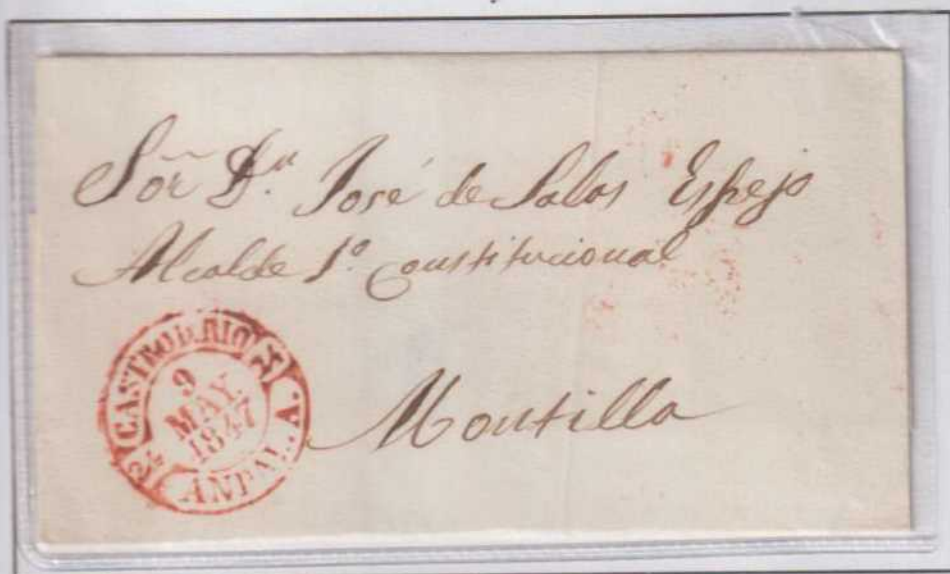 Sor̃ Dⁿ. José de Salas Espejo
Alcalde 1º. Constitucional
Montilla
CASTRO D. RIO
9
MAY.
1847
ANDAL. A.